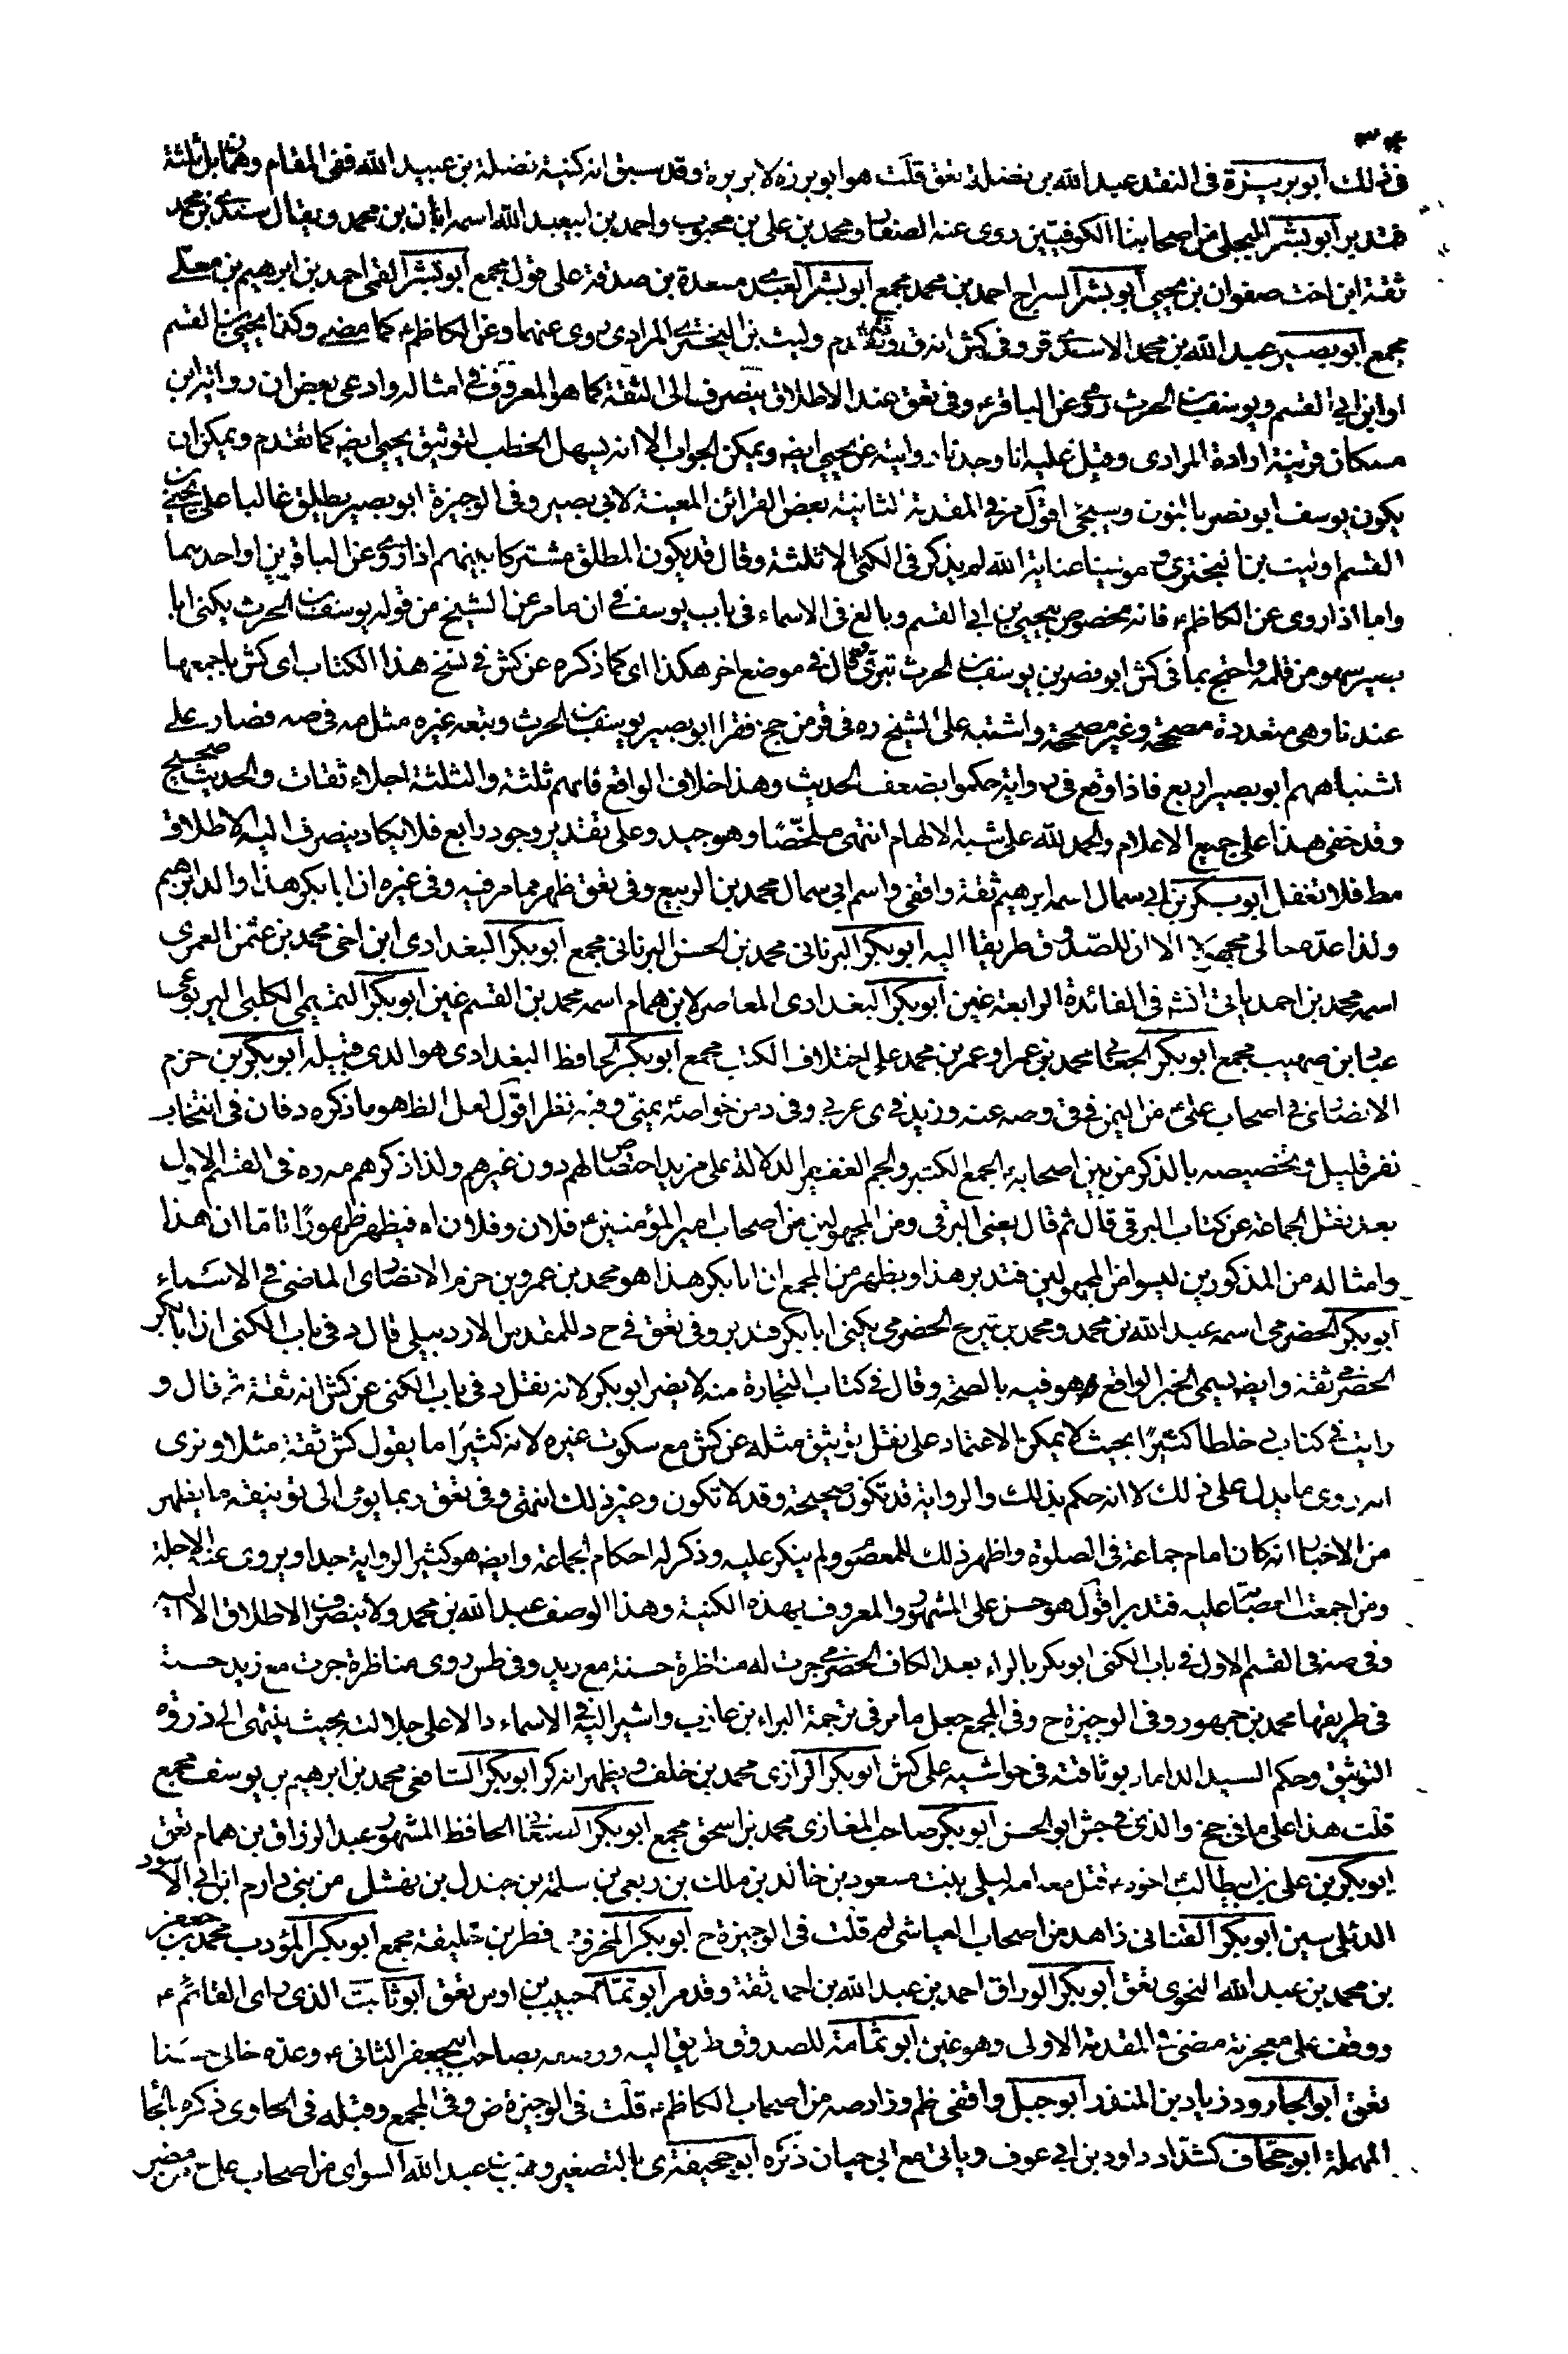 في ذلك أبو بريزة في النقد عبد الله بن نضلة تعق قلت هو ابو برزه لا بريرة وقد سبق انه كنية نضلة بن عبيد الله ففي المقام وهمان بل ثلثة
فتدبر أبو بشر البجلي من اصحابنا الكوفيين روى عنه الصفار ومحمد بن علي بن محبوب واحمد بن ابيعبد الله اسمه ابان بن محمد ويقال سندي بن محمد
ثقة ابن اخت صفوان بن يحيى أبو بشر السراج احمد بن محمد مجمع أبو بشر العبدي مسعدة بن صدقة على قول مجمع أبو بشر القمي احمد بن ابرهيم بن معلى
مجمع أبو بصير عبد الله بن محمد الاسدي قر وفي كش وليث بن البختري المرادي روى عنهما وعن الكاظم ع كما مضى وكذا يحيى بن القسم
او ابن ابي القسم ويوسف بن الحرث روى عن الباقر ع وفي تعق عند الاطلاق ينصرف الى الثقة كما هو المعروف في امثاله وادعى بعض ان رواية ابن
مسكان قرينة ارادة المرادي وقيل عليه انا وجدنا روايته عن يحيى ايضا ويمكن الجواب الا انه يسهل الخطب لتوثيق يحيى ايضا كما تقدم ويمكن ان
يكون يوسف ابو نصر بالنون وسيجئ اقول مر في المقدمة الثانية بعض القرائن المعينة لابي بصير وفي الوجيزة ابو بصير يطلق غالبا على يحيى بن
القسم او ليث بن البختري ومولينا عناية الله لم يذكر في الكنى الا ثلثة وقال قد يكون المطلق مشتركا بينهم اذا روى عن الباقرين او احدهما
واما اذا روى عن الكاظم ع فانه مخصوص بيحيى بن ابي القسم وبالغ في الاسماء في باب يوسف في ان ما مر عن الشيخ من قوله يوسف بن الحرث يكنى ابا
بصير سهو من قلمه واحتج بما في كش ابو نصر بن يوسف بن الحرث بتري وقال في موضع اخر هكذا اي كما ذكره عن كش في نسخ هذا الكتاب اي كش باجمعها
عندنا وهي متعددة مصححة وغير مصححة واشتبه على الشيخ ره في قر من جخ فقرأ ابو بصير يوسف بن الحرث وتبعه غيره مثل مه في صه فصار على
اشتباههم أبو بصير اربع فاذا وقع في رواية حكموا بضعف الحديث وهذا خلاف الواقع فانهم ثلثة والثلثة اجلاء ثقات والحديث صحيح
وقد خفى هذا على جميع الاعلام والحمد لله على شبه الالهام انتهى ملخصا وهو جيد وعلى تقدير وجود رابع فلا يكاد ينصرف اليه الاطلاق
مط فلا تغفل أبو بكر بن ابي سمال اسمه ابرهيم ثقة واقفي واسم ابي سمال محمد بن الربيع وفي تعق ظهر مما مر فيه وفي غيره ان ابا بكر هذا والد ابرهيم
ولذا عده خالي مجهولا الا ان للصدوق طريقا اليه أبو بكر البرناني محمد بن الحسن البرناني مجمع أبو بكر البغدادي ابن اخي محمد بن عثمن العمري
اسمه محمد بن احمد ياتي انشه في الفائدة الرابعة غين أبو بكر البغدادي المعاصر لابن همام اسمه محمد بن القسم غين أبو بكر التميمي الكلبي اليربوعي
عباد بن صهيب مجمع أبو بكر الجعابي محمد بن عمر او عمر بن محمد على اختلاف الكتب مجمع أبو بكر الحافظ البغدادي هو الذي قبيله أبو بكر بن حزم
الانصاري في اصحاب علي ع من اليمن في قي وصه عنه وزيد في ي عربي وفي د من خواصه يمني وفيه نظر اقول لعل الظ هو ما ذكره د فان في انتخاب
نفر قليل وتخصيصه بالذكر من بين اصحابه ع الجمع الكثير والجم الغفير الدلالة على مزيد اختصاص لهم دون غيرهم ولذا ذكرهم مه ره في القسم الاول
بعد نقل الجماعة عن كتاب البرقي قال ثم قال يعني البرقي ومن المجهولين من اصحاب امير المؤمنين ع فلان وفلان اه فيظهر ظهورا تاما ان هذا
وامثاله من المذكورين ليسوا من المجهولين فتدبر هذا ويظهر من المجمع ان ابا بكر هذا هو محمد بن عمرو بن حزم الانصاري الماضي في الاسماء
أبو بكر الحضرمي اسمه عبد الله بن محمد ومحمد بن شريح الحضرمي يكنى ابا بكر فتدبر وفي تعق في ح د للمقدس الاردبيلي قال د في باب الكنى ان ابا بكر
الحضرمي ثقة وايضا يسمى الخبر الواقع هو فيه بالصحة وقال في كتاب التجارة منه لا يضر ابو بكر لانه نقل د في باب الكنى عن كش انه ثقة ثم قال و
رايت في كتابي خلطا كثيرا بحيث لا يمكن الاعتماد على نقل توثيق مثله عن كش مع سكوت غيره لانه كثيرا ما يقول كش ثقة مثلا ونرى
انه روى ما يدل على ذلك لا انه حكم بذلك والرواية قد تكون صحيحة وقد لا تكون وغير ذلك انتهى وفي تعق ربما يومى الى توثيقه ما يظهر
من الاخبار انه كان امام جماعة في الصلوة واظهر ذلك للمعصوم ولم ينكر عليه وذكر له احكام الجماعة وايضا هو كثير الرواية جدا ويروى عنه الاجلة
ومن اجمعت العصابة عليه فتدبر اقول هو حسن على المشهور والمعروف بهذه الكنية وهذا الوصف عبد الله بن محمد ولا ينصرف الاطلاق الا اليه
وفي صه في القسم الاول في باب الكنى ابو بكر بالراء بعد الكاف الحضرمي جرت له مناظرة حسنة مع زيد وفي طس روى مناظرة جرت مع زيد حسنة
في طريقها محمد بن جمهور وفي الوجيزة ح وفي المجمع جعل ما مر في ترجمة البراء بن عازب واشير اليه في الاسماء دالا على جلالته بحيث ينتهى الى ذروه
التوثيق وحكم السيد الداماد بوثاقته في حواشيه على كش أبو بكر الرازي محمد بن خلف ويظهر انه كر أبو بكر الشافعي محمد بن ابرهيم بن يوسف مجمع
قلت هذا على ما في جخ والذي في جش ابو الحسن أبو بكر صاحب المغازي محمد بن اسحق مجمع أبو بكر الصنعاني الحافظ المشهور عبد الرزاق بن همام تعق
أبو بكر بن علي بن ابيطالب اخوه ع قتل معه امه ليلى بنت مسعود بن خالد بن ملك بن ربعي بن سلمة بن جندل بن نهشل من بني دارم ابن ابي الاسود
الدئلي سين أبو بكر القناني زاهد من اصحاب العياشي لم قلت في الوجيزة ح أبو بكر المخزومي فطر بن خليفة مجمع أبو بكر المؤدب محمد بن جعفر
بن محمد بن عبد الله النحوي تعق أبو بكر الوراق احمد بن عبد الله بن احمد ثقة وقد مر أبو تمام حبيب بن اوس تعق أبو ثابت الذي راى القائم ع
ووقف على معجزته مضى في المقدمة الاولى وهو غين أبو ثمامة للصدوق طريق اليه ووسمه بصاحب ابيجعفر الثاني ع وعده خالي حسنا
تعق أبو الجارود زياد بن المنذر أبو جبل واقفي ظم وزاد صه من اصحاب الكاظم ع قلت في الوجيزة ض وفي المجمع وقبله في الحاوي ذكره بالحا
المهملة أبو جحاف كشداد داود بن ابي عوف وياتي مع ابي حيان ذكره أبو جحيفة ي بالتصغير وهب بن عبد الله السواي من اصحاب علي ع من مضر